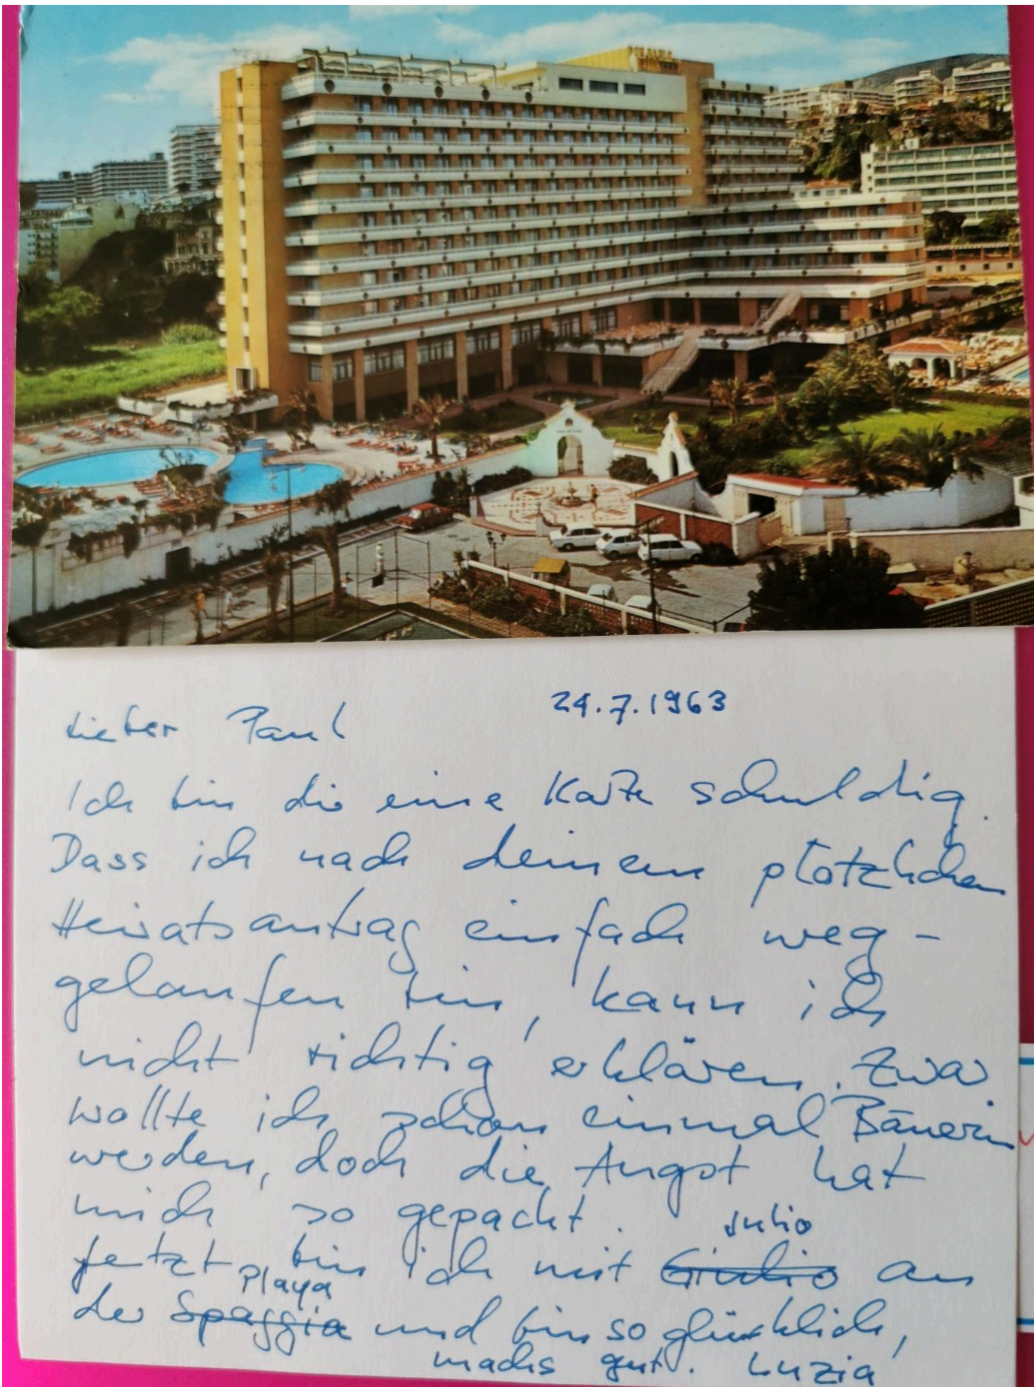 24.7.1963
Lieber Paul
Ich bin dir eine Karte schuldig.
Dass ich nach deinem plötzlichen
Heiratsantrag einfach weg-
gelaufen bin, kann ich
nicht richtig erklären. Zwar
wollte ich schon einmal Bäuerin
werden, doch die Angst hat
mich so gepackt.
Julio
Jetzt bin ich mit Giulio an
Playa
der Spaggia und bin so glücklich,
machs gut. Luzia